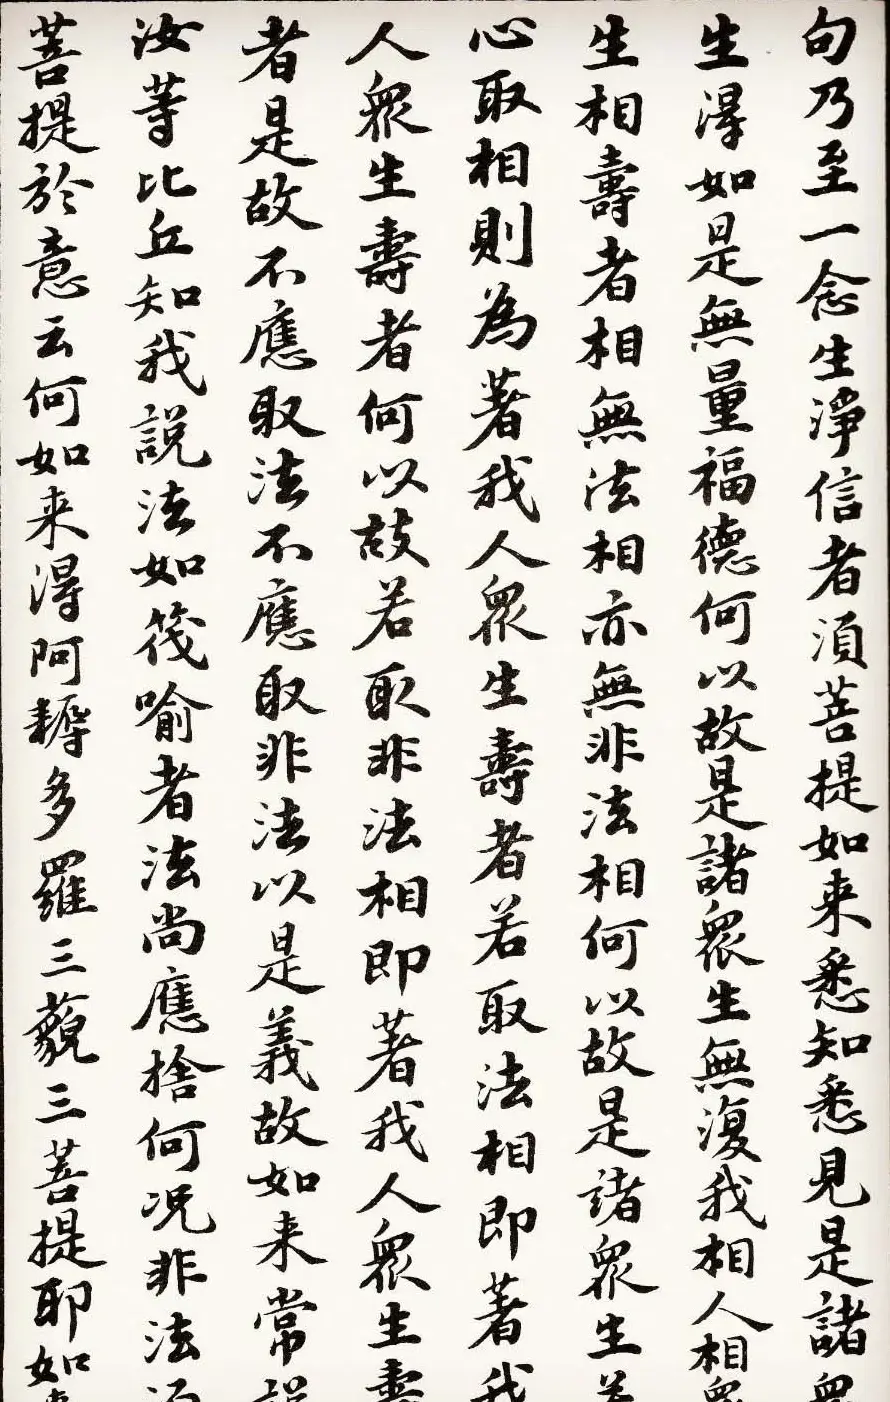 句乃至一念生淨信者須菩提如来悉知悉見是諸眾
生淂如是無量福德何以故是諸眾生無復我相人相眾
生相壽者相無法相亦無非法相何以故是諸眾生若
心取相則為著我人眾生壽者若取法相即著我
人眾生壽者何以故若取非法相即著我人眾生壽
者是故不應取法不應取非法以是義故如来常説
汝等比丘知我説法如筏喻者法尚應捨何况非法須
菩提於意云何如来淂阿耨多羅三藐三菩提耶如来